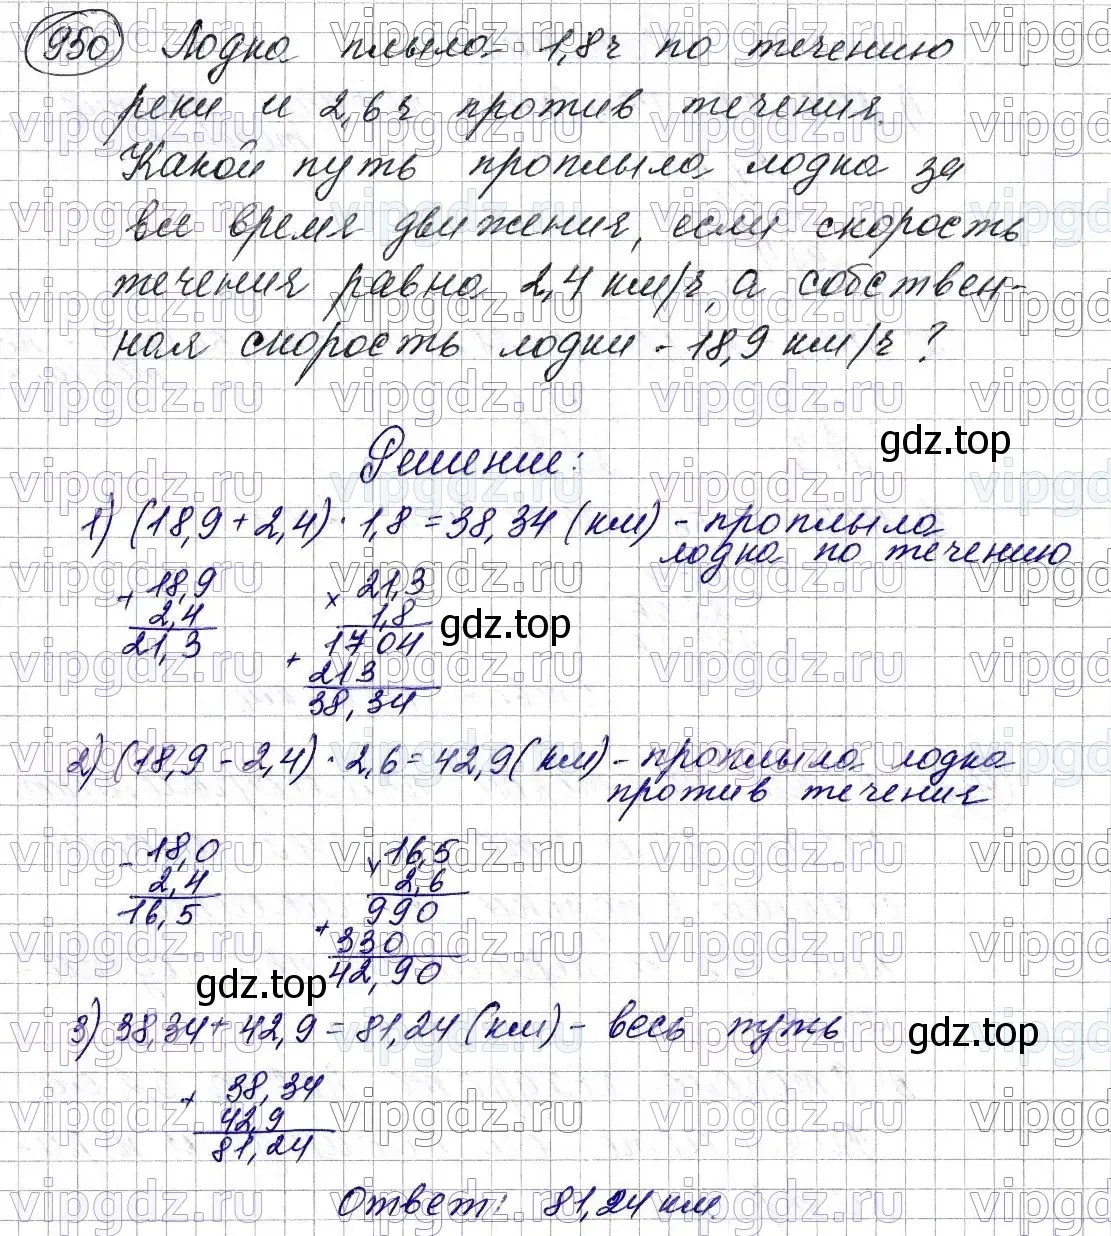 950 Лодка плыла 1,8ч по течению
реки и 2,6 ч против течения.
Какой путь проплыла лодка за
все время движения, если скорость
течения равна 2,4 км/ч, а собствен-
ная скорость лодки - 18,9 км/ч?
gdz.top
Решение:
1) (18,9 + 2,4) · 1,8 = 38,34 (км) - проплыла
лодка по течению
+ 18,9 × 21,3
2,4 1,8
gdz.top
21,3 1704
+ 213
38,34
2) (18,9 - 2,4) · 2,6 = 42,9 (км) - проплыла лодка
против течения
- 18,0 × 16,5
2,4 2,6
16,5 990
+ 330
42,90
gdz.top
3) 38,34 + 42,9 = 81,24 (км) - весь путь
gdz.top
+ 38,34
42,9
81,24
Ответ: 81,24 км.
vipgdz.ru